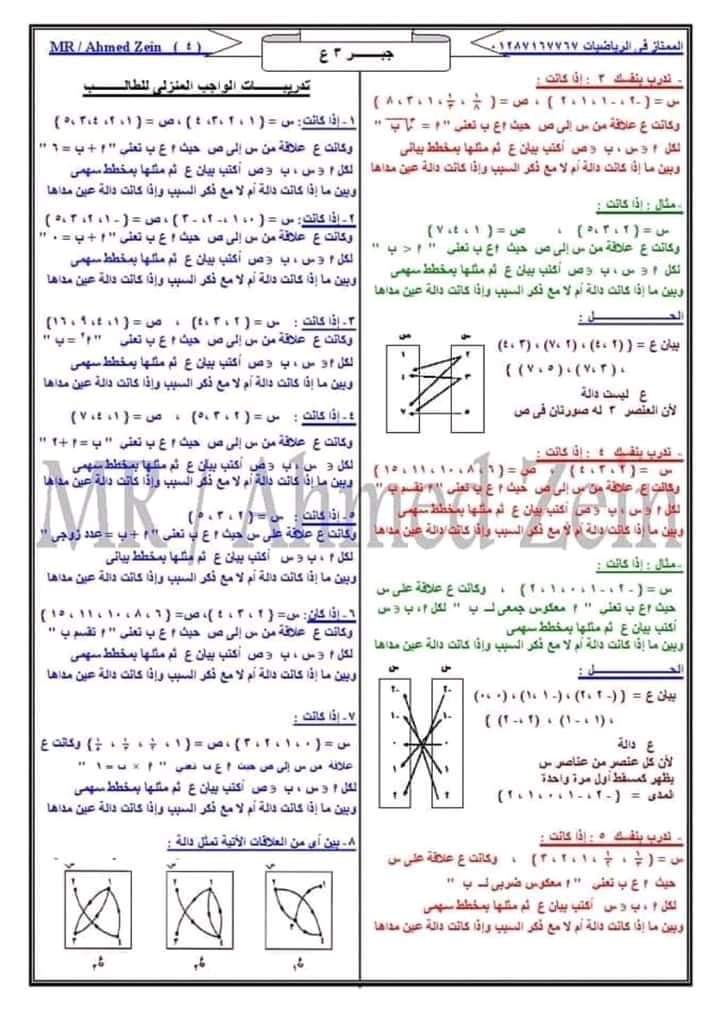 الممتاز فى الرياضيات ٠١٢٨٧١٦٧٧٦٧
جبـــر ٣ ع
MR / Ahmed Zein ( ٤ )
- تدرب بنفسك ٣ : إذا كانت :
وكانت ع علاقة من س إلى ص حيث ٢ ع ب تعنى
لكل ٢ ∈ س ، ب ∈ ص أكتب بيان ع ثم مثلها بمخطط بيانى
وبين ما إذا كانت دالة أم لا مع ذكر السبب وإذا كانت دالة عين مداها
- مثال : إذا كانت :
س = { ٢ ، ٣ ، ٥ } ، ص = { ١ ، ٤ ، ٧ }
وكانت ع علاقة من س إلى ص حيث ٢ ع ب تعنى " ٢ < ب "
لكل ٢ ∈ س ، ب ∈ ص أكتب بيان ع ثم مثلها بمخطط سهمى
وبين ما إذا كانت دالة أم لا مع ذكر السبب وإذا كانت دالة عين مداها
الحـــــــل :
بيان ع = { (٢ ، ٤) ، (٢ ، ٧) ، (٣ ، ٤)
، (٣ ، ٧) ، (٥ ، ٧) }
ع ليست دالة
لأن العنصر ٣ له صورتان فى ص
ص س
١ ٢
٤ ٣
٧ ٥
- تدرب بنفسك ٤ : إذا كانت :
س = { ٢ ، ٣ ، ٤ } ، ص = { ٦ ، ٨ ، ١٠ ، ١١ ، ١٥ }
وكانت ع علاقة من س إلى ص حيث ٢ ع ب تعنى " ٢ تقسم ب "
لكل ٢ ∈ س ، ب ∈ ص أكتب بيان ع ثم مثلها بمخطط سهمى
وبين ما إذا كانت دالة أم لا مع ذكر السبب وإذا كانت دالة عين مداها
- مثال : إذا كانت :
س = { -٢ ، -١ ، ٠ ، ١ ، ٢ } ، وكانت ع علاقة على س
حيث ٢ ع ب تعنى " ٢ معكوس جمعى لـ ب " لكل ٢ ، ب ∈ س
أكتب بيان ع ثم مثلها بمخطط سهمى
وبين ما إذا كانت دالة أم لا مع ذكر السبب وإذا كانت دالة عين مداها
الحـــــــل :
بيان ع = { (-٢ ، ٢) ، (-١ ، ١) ، (٠ ، ٠)
، (١ ، -١) ، (٢ ، -٢) }
ع دالة
لأن كل عنصر من عناصر س
يظهر كمسقط أول مرة واحدة
المدى = { -٢ ، -١ ، ٠ ، ١ ، ٢ }
س س
-٢ -٢
-١ -١
٠ ٠
١ ١
٢ ٢
- تدرب بنفسك ٥ : إذا كانت :
وكانت ع علاقة على س
حيث ٢ ع ب تعنى " ٢ معكوس ضربى لـ ب "
لكل ٢ ، ب ∈ س أكتب بيان ع ثم مثلها بمخطط سهمى
وبين ما إذا كانت دالة أم لا مع ذكر السبب وإذا كانت دالة عين مداها
تدريبـــات الواجب المنزلى للطالـــب
١- إذا كانت : س = { ١ ، ٢ ، ٣ ، ٤ } ، ص = { ١ ، ٢ ، ٤ ، ٣ ، ٥ }
وكانت ع علاقة من س إلى ص حيث ٢ ع ب تعنى " ٢ + ب = ٦ "
لكل ٢ ∈ س ، ب ∈ ص أكتب بيان ع ثم مثلها بمخطط سهمى
وبين ما إذا كانت دالة أم لا مع ذكر السبب وإذا كانت دالة عين مداها
٢- إذا كانت : س = { ٠ ، ١ ، -٢ ، -٣ } ، ص = { -١ ، ٢ ، ٣ ، ٥ }
وكانت ع علاقة من س إلى ص حيث ٢ ع ب تعنى " ٢ + ب = ٠ "
لكل ٢ ∈ س ، ب ∈ ص أكتب بيان ع ثم مثلها بمخطط سهمى
وبين ما إذا كانت دالة أم لا مع ذكر السبب وإذا كانت دالة عين مداها
٣- إذا كانت : س = { ٢ ، ٣ ، ٤ } ، ص = { ١ ، ٤ ، ٩ ، ١٦ }
وكانت ع علاقة من س إلى ص حيث ٢ ع ب تعنى " ٢² = ب "
لكل ٢ ∈ س ، ب ∈ ص أكتب بيان ع ثم مثلها بمخطط سهمى
وبين ما إذا كانت دالة أم لا مع ذكر السبب وإذا كانت دالة عين مداها
٤- إذا كانت : س = { ٢ ، ٣ ، ٥ } ، ص = { ١ ، ٤ ، ٧ }
وكانت ع علاقة من س إلى ص حيث ٢ ع ب تعنى " ب = ٢ + ٢ "
لكل ٢ ∈ س ، ب ∈ ص أكتب بيان ع ثم مثلها بمخطط سهمى
وبين ما إذا كانت دالة أم لا مع ذكر السبب وإذا كانت دالة عين مداها
٥- إذا كانت : س = { ٢ ، ٣ ، ٥ }
وكانت ع علاقة على س حيث ٢ ع ب تعنى " ٢ + ب = عدد زوجى "
لكل ٢ ، ب ∈ س أكتب بيان ع ثم مثلها بمخطط بيانى
وبين ما إذا كانت دالة أم لا مع ذكر السبب وإذا كانت دالة عين مداها
٦- إذا كان : س = { ٢ ، ٣ ، ٤ } ، ص = { ٦ ، ٨ ، ١٠ ، ١١ ، ١٥ }
وكانت ع علاقة من س إلى ص حيث ٢ ع ب تعنى " ٢ تقسم ب "
لكل ٢ ∈ س ، ب ∈ ص أكتب بيان ع ثم مثلها بمخطط سهمى
وبين ما إذا كانت دالة أم لا مع ذكر السبب وإذا كانت دالة عين مداها
٧- إذا كانت :
س = { ٠ ، ١ ، ٢ ، ٣ } وكانت ع
علاقة من س إلى ص حيث ٢ ع ب تعنى " ٢ × ب = ١ "
لكل ٢ ∈ س ، ب ∈ ص أكتب بيان ع ثم مثلها بمخطط سهمى
وبين ما إذا كانت دالة أم لا مع ذكر السبب وإذا كانت دالة عين مداها
٨- بين أي من العلاقات الأتية تمثل دالة :
MR / Ahmed Zein